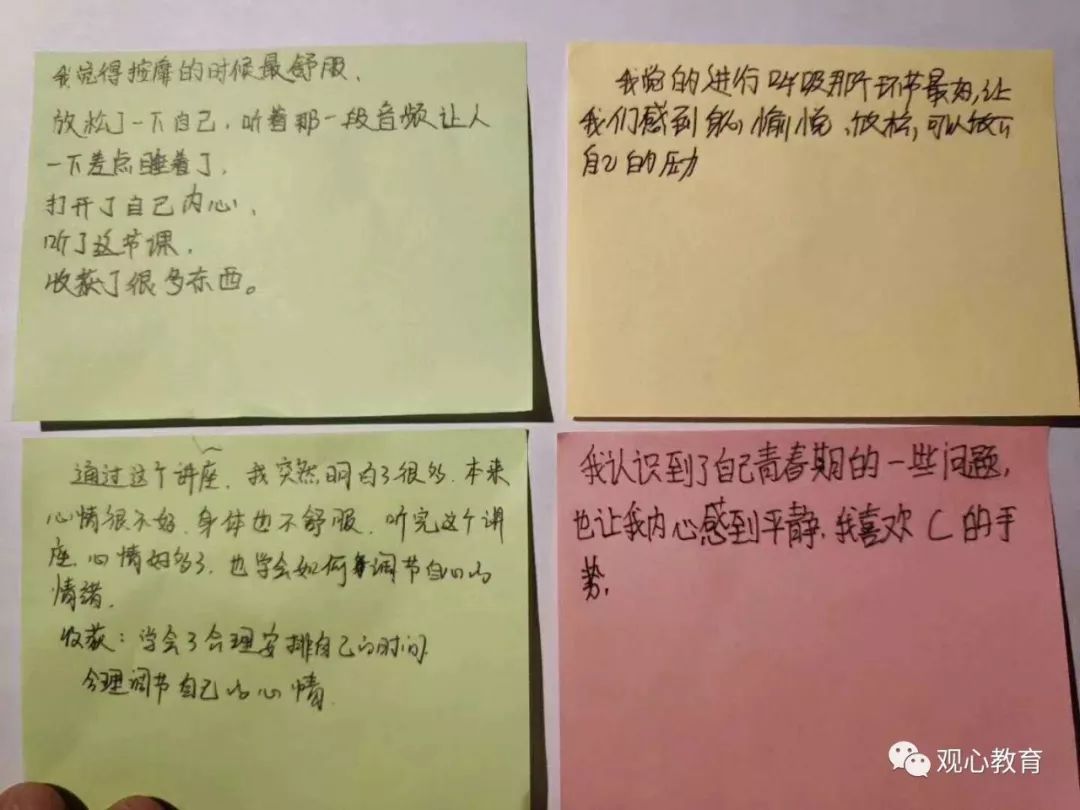 我觉得按摩的时候最舒服、
放松了一下自己，听着那一段音频让人
一下差点睡着了，
打开了自己内心、
听了这节课，
收获了很多东西。
我觉的进行呼吸那个环节最好，让
我们感到身心愉悦、放松，可以放下
自己的压力
通过这个讲座，我突然明白了很多，本来
心情很不好，身体也不舒服，听完这个讲
座，心情好多了，也学会如何调节自己的
情绪．
收获：学会了合理安排自己的时间
合理调节自己的心情．
我认识到了自己青春期的一些问题，
也让我内心感到平静，我喜欢C的手
势，
观心教育